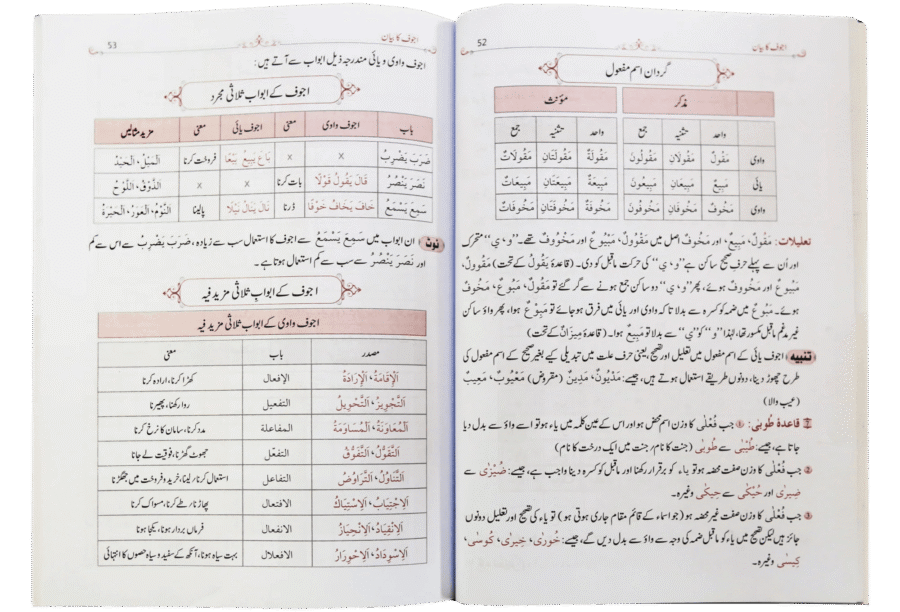 52
اجوف کا بیان
گردان اسم مفعول
مذکر مؤنث
واحد تثنیہ جمع واحد تثنیہ جمع
واوی مَقُولٌ مَقُولَانِ مَقُولُونَ مَقُولَةٌ مَقُولَتَانِ مَقُولَاتٌ
یائی مَبِيعٌ مَبِيعَانِ مَبِيعُونَ مَبِيعَةٌ مَبِيعَتَانِ مَبِيعَاتٌ
واوی مَخُوفٌ مَخُوفَانِ مَخُوفُونَ مَخُوفَةٌ مَخُوفَتَانِ مَخُوفَاتٌ
تعلیلات: مَقُولٌ، مَبِيعٌ، اور مَخُوفٌ اصل میں مَقْوُولٌ، مَبْيُوعٌ اور مَخْوُوفٌ تھے۔ ”و، ي“ متحرک
اور اُن سے پہلے حرفِ صحیح ساکن ہے ”و، ي“ کی حرکت ماقبل کو دی۔ (قاعدۂ يَقُولُ کے تحت) مَقُوولٌ،
مَبُيوعٌ اور مَخُووفٌ ہوئے، پھر ”و، ي“ دو ساکن جمع ہونے سے گر گئے تو مَقُولٌ، مَبُوعٌ، مَخُوفٌ
ہوئے۔ مَبُوعٌ میں ضمہ کو کسرہ سے بدلا تاکہ واوی اور یائی میں فرق ہو جائے تو مَبِوْعٌ ہوا، پھر واؤ ساکن
غیر مدغم ماقبل مکسور تھا، لہٰذا ”و“ کو ”ي“ سے بدلا تو مَبِيعٌ ہوا۔ (قاعدۂ مِيزَانٌ کے تحت)
تنبیہ اجوف یائی کے اسم مفعول میں تعلیل اور تصحیح، یعنی حرف علت میں تبدیلی کیے بغیر صحیح کے اسم مفعول کی
طرح چھوڑ دینا، دونوں طریقے استعمال ہوتے ہیں، جیسے: مَدْيُونٌ، مَدِينٌ (مقروض) مَعْيُوبٌ، مَعِيبٌ
(عیب والا)
قاعدۂ طُوبٰى: ① جب فُعْلٰى کا وزن اسم محض ہو اور اس کے عین کلمہ میں یاء ہو تو اسے واؤ سے بدل دیا
جاتا ہے، جیسے: طُيْبٰى سے طُوبٰى (جنت کا نام/ جنت میں ایک درخت کا نام)
② جب فُعْلٰى کا وزن صفت محضہ ہو تو یاء کو برقرار رکھنا اور ماقبل کو کسرہ دینا واجب ہے، جیسے: ضُيْزٰى سے
ضِيزٰى اور حُيْكٰى سے حِيكٰى وغیرہ۔
③ جب فُعْلٰى کا وزن صفت غیر محضہ ہو (جو اسماء کے قائم مقام جاری ہوتی ہو) تو یاء کی تصحیح اور تعلیل دونوں
جائز ہیں لیکن تصحیح میں یاء کو ماقبل ضمہ کی وجہ سے واؤ سے بدل دیں گے، جیسے: خُورٰى، خِيرٰى، كُوسٰى،
كِيسٰى وغیرہ۔
اجوف کا بیان
53
اجوف واوی و یائی مندرجہ ذیل ابواب سے آتے ہیں:
اجوف کے ابواب ثلاثی مجرد
باب اجوف واوی معنی اجوف یائی معنی مزید مثالیں
ضَرَبَ يَضْرِبُ x x بَاعَ يَبِيعُ بَيْعًا فروخت کرنا اَلْمَيْلُ، اَلْحَيْدُ
نَصَرَ يَنْصُرُ قَالَ يَقُولُ قَوْلًا بات کرنا x x اَلذَّوْقُ، اَللَّوْحُ
سَمِعَ يَسْمَعُ خَافَ يَخَافُ خَوْفًا ڈرنا نَالَ يَنَالُ نَيْلًا پالینا اَلنَّوْمُ، اَلْعَوَرُ، اَلْحَيْرَةُ
نوٹ ان ابواب میں سَمِعَ يَسْمَعُ سے اجوف کا استعمال سب سے زیادہ، ضَرَبَ يَضْرِبُ سے اس سے کم
اور نَصَرَ يَنْصُرُ سے سب سے کم استعمال ہوتا ہے۔
اجوف کے ابوابِ ثلاثی مزید فیہ
اجوف واوی کے ابواب ثلاثی مزید فیہ
مصدر باب معنی
اَلْإِقَامَةُ، اَلْإِرَادَةُ الإفعال کھڑا کرنا، ارادہ کرنا
اَلتَّجْوِيزُ، اَلتَّحْوِيلُ التفعيل روا رکھنا، پھیرنا
اَلْمُعَاوَنَةُ، اَلْمُسَاوَمَةُ المفاعلة مدد کرنا، سامان کا نرخ کرنا
اَلتَّقَوُّلُ، اَلتَّفَوُّقُ التفعّل جھوٹ گھڑنا، فوقیت لے جانا
اَلتَّنَاوُلُ، اَلتَّرَاوُضُ التفاعل استعمال کرنا/لینا، خرید و فروخت میں جھگڑنا
اَلِاجْتِيَابُ، اَلِاسْتِيَاكُ الافتعال پھاڑنا/طے کرنا، مسواک کرنا
اَلِانْقِيَادُ، اَلِانْحِيَازُ الانفعال فرماں بردار ہونا، یکجا ہونا
اَلِاسْوِدَادُ، اَلِاحْوِرَارُ الافعلال بہت سیاہ ہونا، آنکھ کے سفید و سیاہ حصوں کا انتہائی